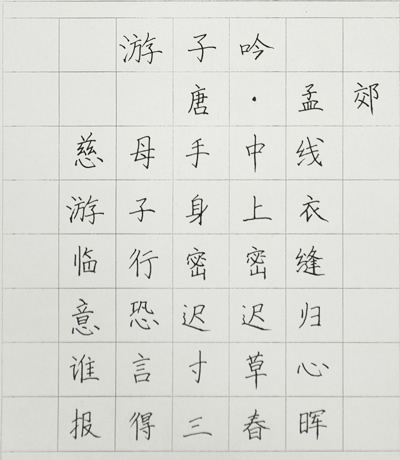 游子吟
唐·孟郊
慈母手中线
游子身上衣
临行密密缝
意恐迟迟归
谁言寸草心
报得三春晖